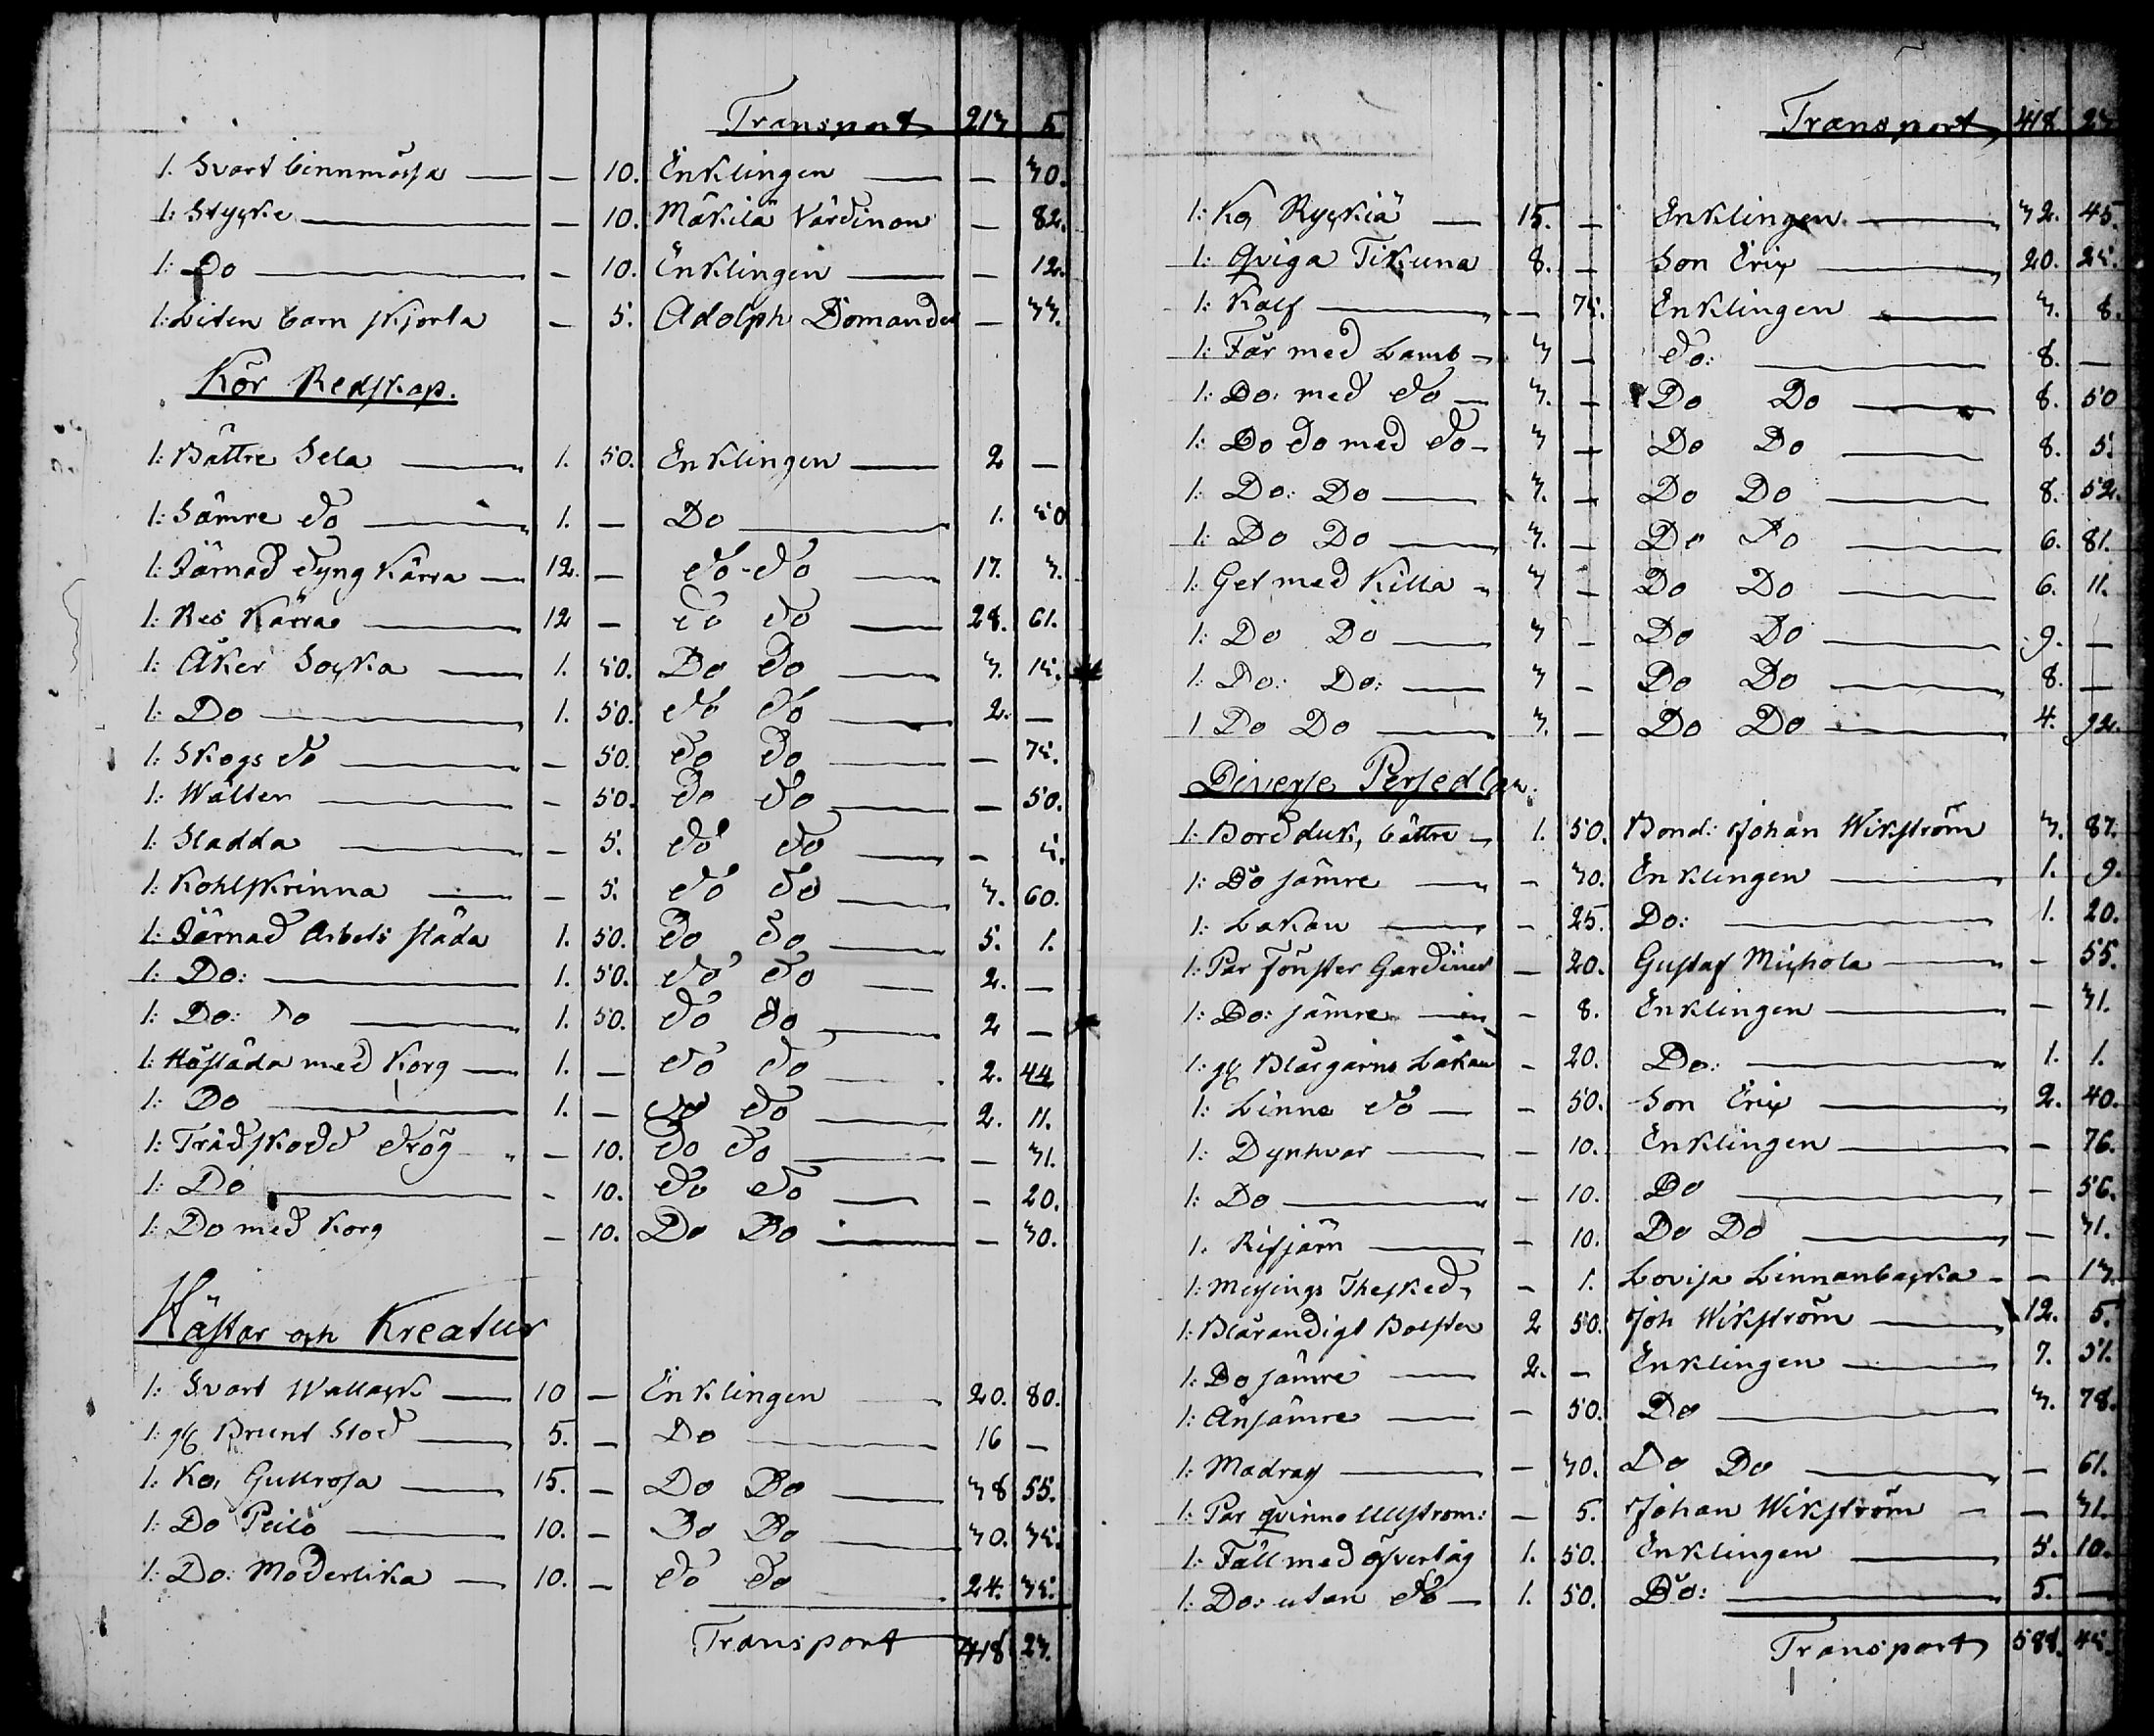 Transport 213 5
1. Svart binnmössa — — 10. Enklingen — — 30.
1: Stycke — — 10. Mäkilä Värdinnan — 82.
1: Do — — 10. Enklingen — — 12.
1: Liten barn skjorta — 5. Adolph Domander — 33.
Kör Redskap.
1: Bättre Sela — 1. 50. Enklingen — 2 —
1: Sämre do — 1. — Do — 1. 50
1: Järnad dyng Kärra — 12. — do - do — 17. 3.
1: Res Kärra — 12 — do do — 28. 61.
1: Åker Socka — 1. 50. Do do — 3. 15.
1: Do — 1. 50. do do — 2. —
1: Skogs do — — 50. do do — — 75.
1: Wälten — — 50. do do — — 50.
1: Sladda — — 5. do do — — 5.
1: Kohlskrinna — — 5. do do — 3. 60.
1: Järnad Arbets släda 1. 50. do do — 5. 1.
1: Do: — 1. 50. do do — 2. —
1: Do: do — 1. 50. do do — 2 —
1: Hösläda med Korg — 1. — do do — 2. 44
1: Do — 1. — do do — 2. 11.
1: Trädskodd drög — 10. Do do — — 31.
1: Do — - 10. do do — - 20.
1: Do med Korg — 10. Do Do — — 30.
Hästar och Kreatur
1: Svart Wallack — 10 — Enklingen — 20. 80.
1: gl Brunt Stod — 5. — Do — 16 —
1: Ko, Gullrosa — 15. — Do Do — 38 55.
1: Do Peilo — 10. — Do Do — 30. 35.
1: Do: Moderlika — 10. — do do — 24. 35.
Transport 418 23.
Transport 418 23
1: Ko, Ryckiä — 15. — Enklingen — 32. 45.
1: Qviga Tikuna 8. — Son Eric — 20. 25.
1: Kalf — — 75. Enklingen — 3. 8.
1: Får med Lamb — 3 — do: — 8. —
1: Do: med do — 3. — Do Do — 8. 50
1: Do do med do — 3 — Do Do — 8. 5.
1: Do: Do — 3. — Do Do — 8. 52.
1: Do Do — 3. — Do Do — 6. 81.
1: Get med Killa — 3 — Do Do — 6. 11.
1: Do Do — 3 — Do Do — 9. —
1: Do: Do: — 3 — Do Do — 8. —
1 Do Do — 3. — Do Do — 4. 92.
Diverse Persedlar.
1: Bordduk, bättre — 1. 50. Bond: Johan Wikström 3. 87.
1: Do sämre — - 30. Enklingen — 1. 9.
1: Lakan — - 25. Do: — 1. 20.
1: Par Fönster Gardiner — 20. Gustaf Mickola — - 55.
1: Do: sämre — - 8. Enklingen — — 31.
1: gl Blårgarns Lakan - 20. Do: — 1. 1.
1: Linne do — - 50. Son Eric — 2. 40.
1: Dynhvar — - 10. Enklingen — - 76.
1: Do — - 10. Do — — 56.
1. Risjärn — - 10. Do Do — — 31.
1: Messings Thesked, - 1. Lovisa Linnanbacka - - 13.
1: Blårandigt Bolster 2 50. Joh Wikström — 12. 5.
1: Do sämre — 2. — Enklingen — 7. 51.
1: Änsämre — - 50. Do — 3. 78.
1: Madrass — — 30. Do Do — — 61.
1: Par qvinno Ullstrom: — 5. Johan Wikström — — 31.
1: Fäll med öfvertåg 1. 50. Enklingen — 5. 10.
1: Do: utan do — 1. 50. Do: — 5. —
Transport 588. 45.